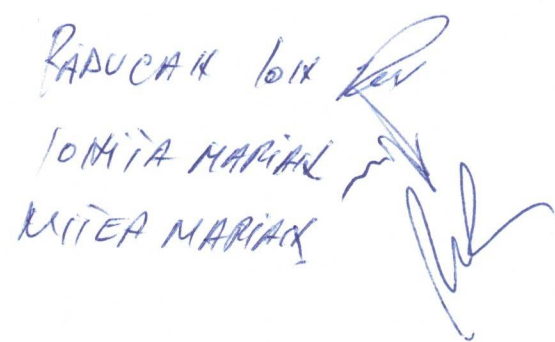 RADUCAN ION
IONITA MARIAN
MITEA MARIAN